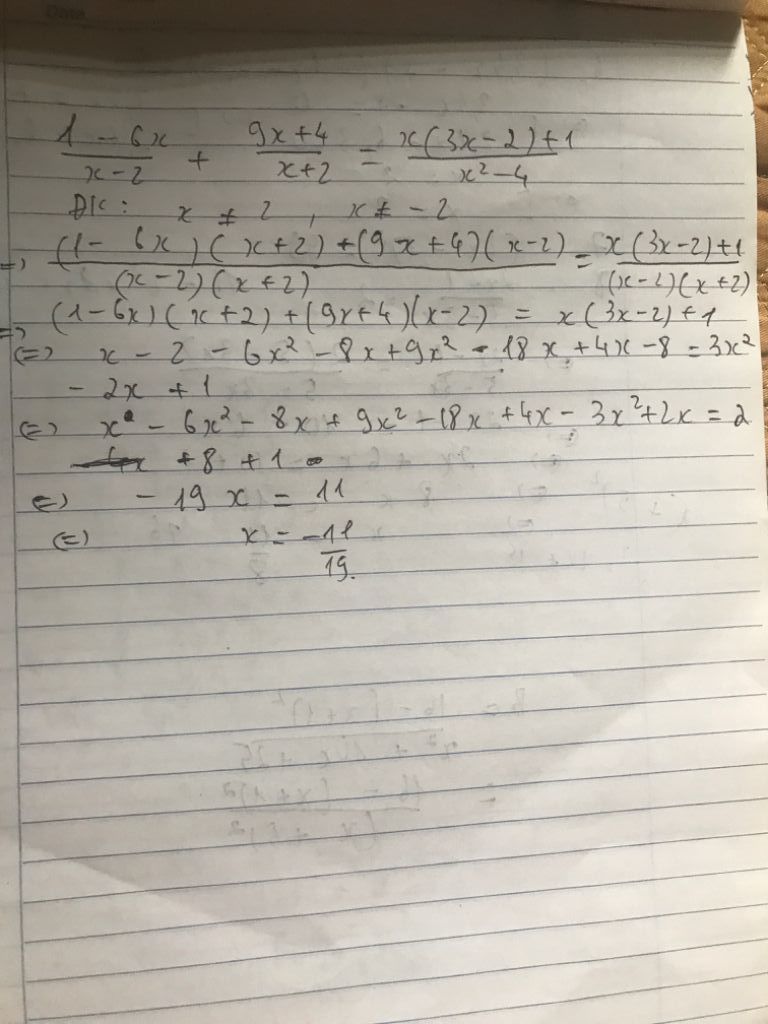 Date
1 - 6x / x - 2 + 9x + 4 / x + 2 = x(3x - 2) + 1 / x² - 4
ĐK: x ≠ 2 , x ≠ - 2
=> (1 - 6x)(x + 2) + (9x + 4)(x - 2) / (x - 2)(x + 2) = x(3x - 2) + 1 / (x - 2)(x + 2)
=> (1 - 6x)(x + 2) + (9x + 4)(x - 2) = x(3x - 2) + 1
<=> x - 2 - 6x² - 8x + 9x² - 18x + 4x - 8 = 3x²
- 2x + 1
<=> x - 6x² - 8x + 9x² - 18x + 4x - 3x² + 2x = 2
+ 8 + 1
<=> - 19x = 11
<=> x = -11 / 19.